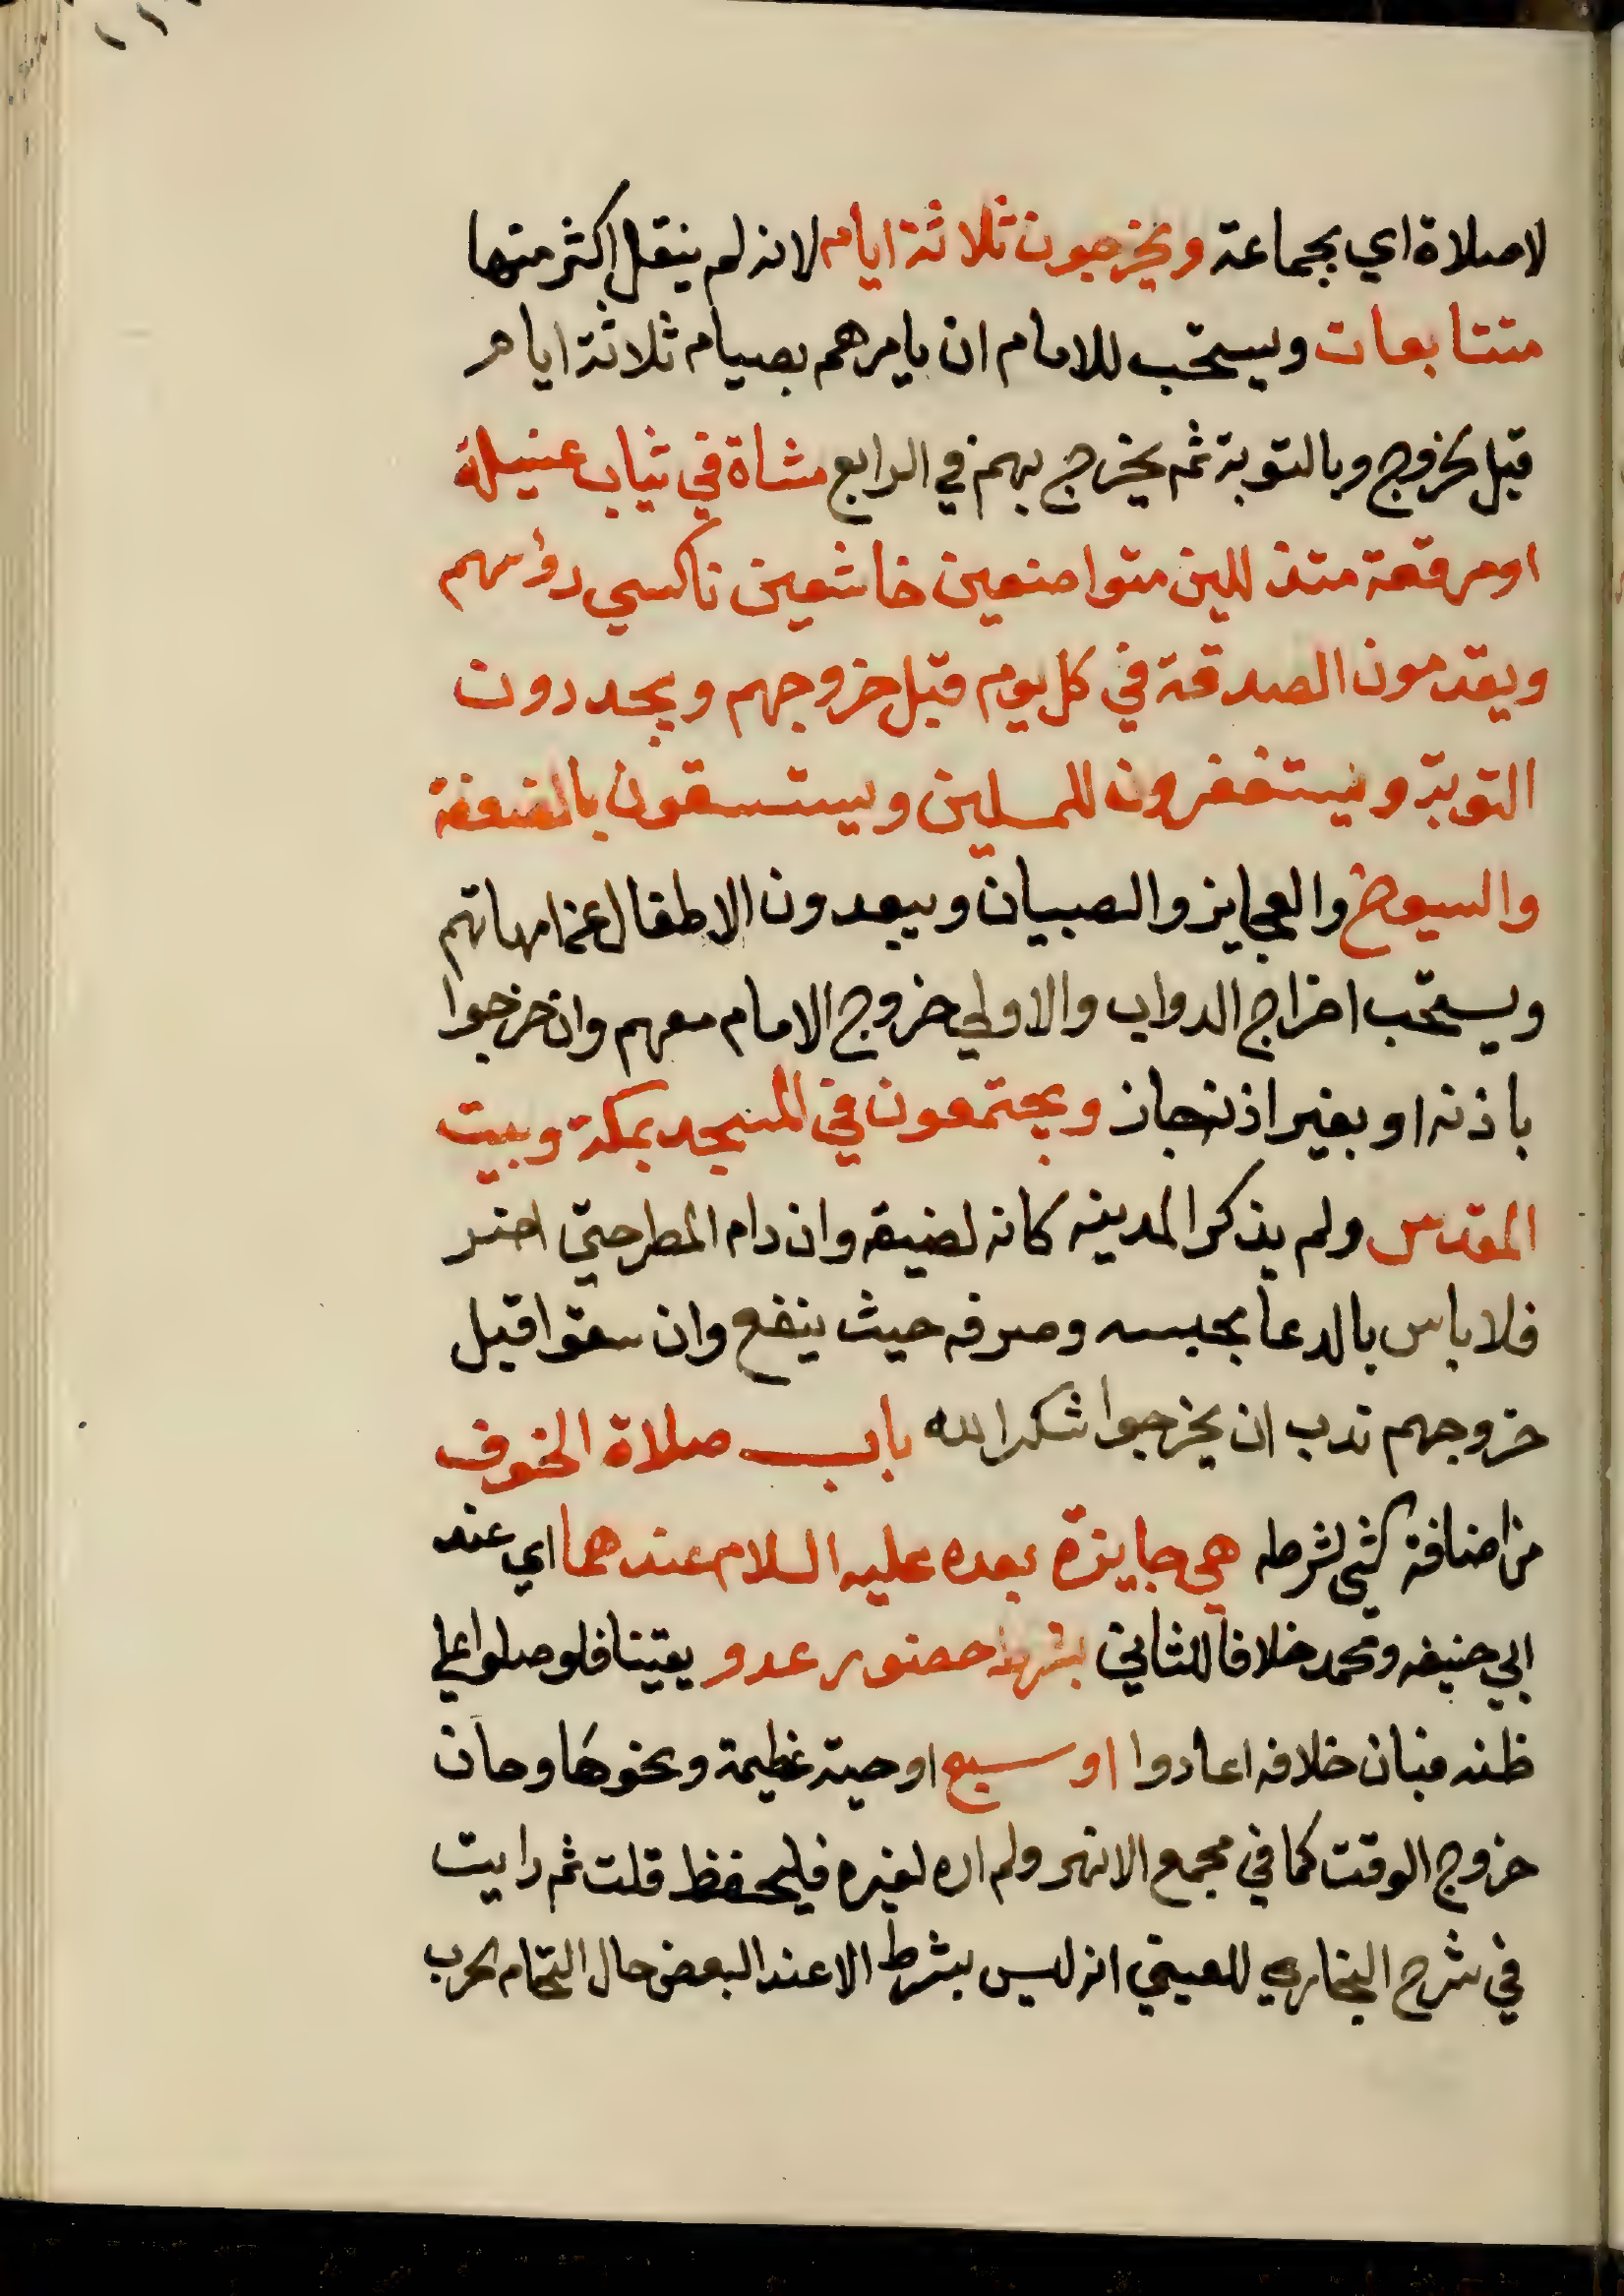 لاصلاة اي بجماعة ويخرجون ثلاثة ايام لانه لم ينقل اكثر منها
متتابعات ويستحب للامام ان يامرهم بصيام ثلاثة ايام
قبل الخروج وبالتوبة ثم يخرج بهم في الرابع مشاة في ثياب غسيلة
او مرقعة متذللين متواضعين خاشعين ناكسي رؤسهم
ويقدمون الصدقة في كل يوم قبل خروجهم ويجددون
التوبة ويستغفرون للمسلمين ويستسقون بالضعفة
والسيوخ والعجايز والصبيان ويبعدون الاطفال عن امهاتهم
ويستحب اخراج الدواب والاولي خروج الامام معهم وان خرجوا
باذنه او بغير اذنه جاز ويجتمعون في المسجد بمكة وبيت
المقدس ولم يذكر المدينه كانه لضيقه وان دام المطر حتي اضر
فلا باس بالدعا بحبسه وصرفه حيث ينفع وان سقوا قبل
خروجهم ندب ان يخرجوا شكرا لله باب صلاة الخوف
من اضافة الشي لشرطه هي جايزة بعده عليه السلام عندهما اي عند
ابي حنيفه ومحمد خلافا للثاني بشرط حضور عدو يقينا فلو صلوا علي
ظنه فبان خلافه اعادوا او سبع او حية عظيمة ونحوها وحان
خروج الوقت كما في مجمع الانهر ولم اره لغيره فليحفظ قلت ثم رايت
في شرح البخاري للعيني انه ليس بشرط الا عند البعض حال التحام الحرب